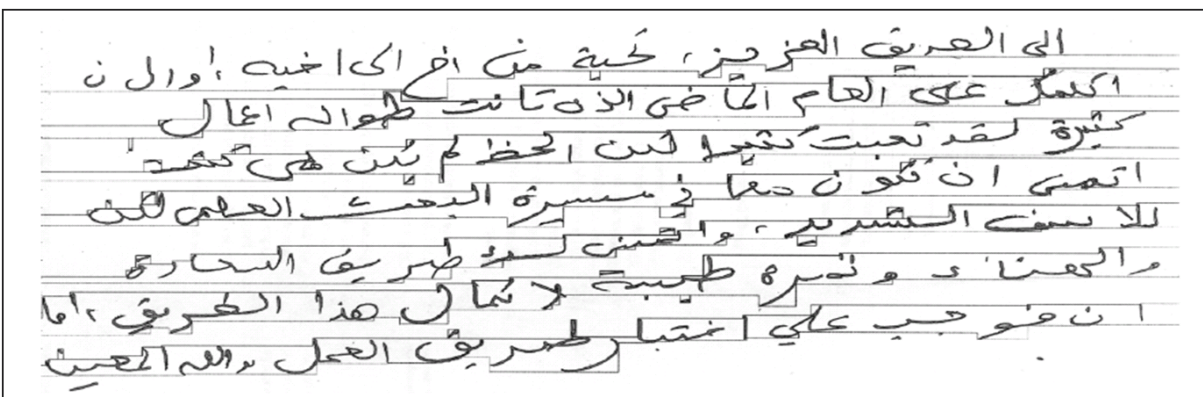 الى الصديق العزيز، تحية من اخ الى اخيه، اوال ن
اكلمك على العام الماضي الذي كانت طواله اعمال
كثيرة لقد تعبت كثيرا لكن الحظ لم يكن هي كنت
اتمنى ان نكون معا في مسيرة البحث العلمي لكن
للاسف الشديد، واتمنى لك طريق السعادة
والهناء و ثمرة طيبة لاكمال هذا الطريق، اما
ان فوجب علي اختيار طريق العمل والله المعين